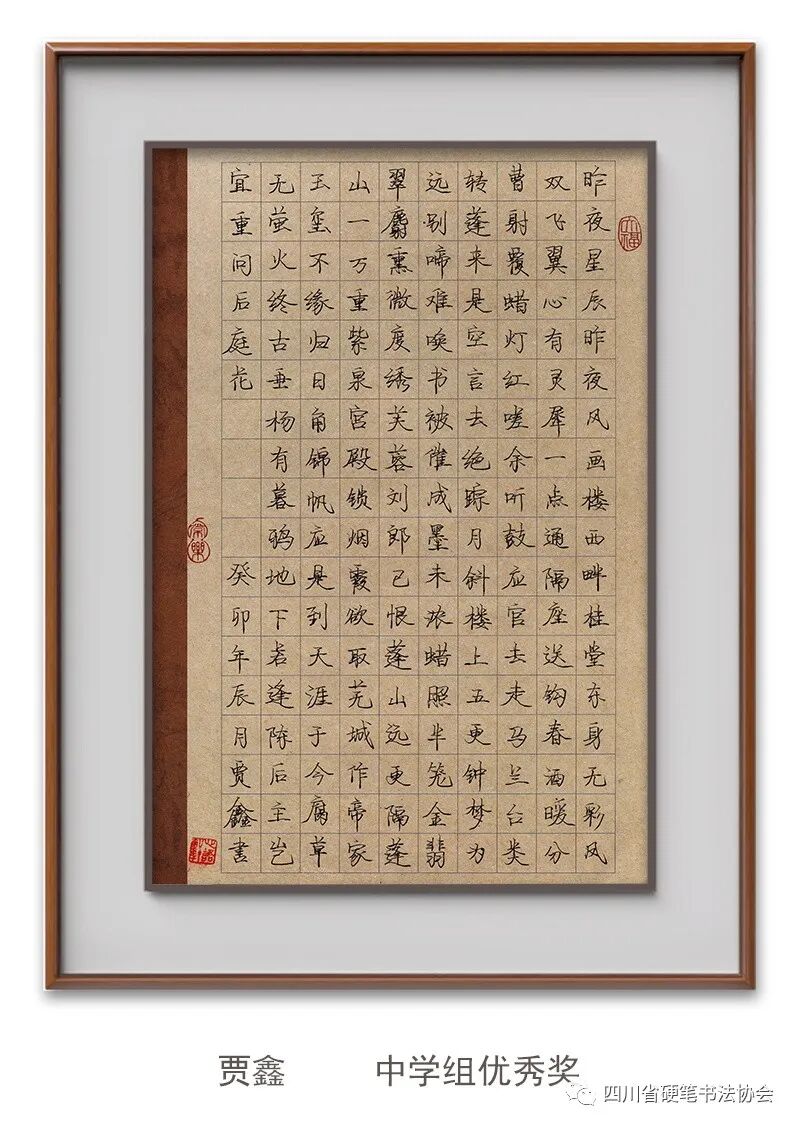 昨夜星辰昨夜风画楼西畔桂堂东身无彩风
双飞翼心有灵犀一点通隔座送钩春酒暖分
曹射覆蜡灯红嗟余听鼓应官去走马兰台类
转蓬来是空言去绝踪月斜楼上五更钟梦为
远别啼难唤书被催成墨未浓蜡照半笼金翡
翠麝熏微度绣芙蓉刘郎已恨蓬山远更隔蓬
山一万重紫泉宫殿锁烟霞欲取芜城作帝家
玉玺不缘归日角锦帆应是到天涯于今腐草
无萤火终古垂杨有暮鸦地下若逢陈后主岂
宜重问后庭花 癸卯年辰月贾鑫书
贾鑫 中学组优秀奖
四川省硬笔书法协会